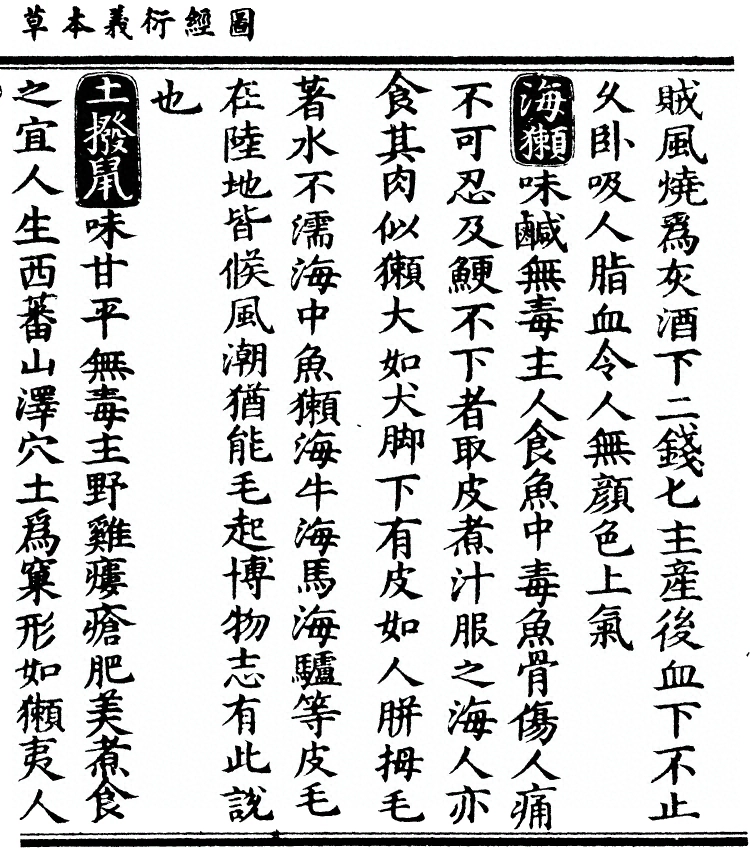 圖經衍義本草
賊風燒爲灰酒下二錢匕主産後血下不止
久卧吸人脂血令人無顔色上氣
海獺味鹹無毒主人食魚中毒魚骨傷人痛
不可忍及鯁不下者取皮煮汁服之海人亦
食其肉似獺大如犬脚下有皮如人胼拇毛
著水不濡海中魚獺海牛海馬海驢等皮毛
在陸地皆候風潮猶能毛起博物志有此說
也
土撥鼠味甘平無毒主野雞瘻瘡肥美煮食
之宜人生西蕃山澤穴土爲窠形如獺夷人